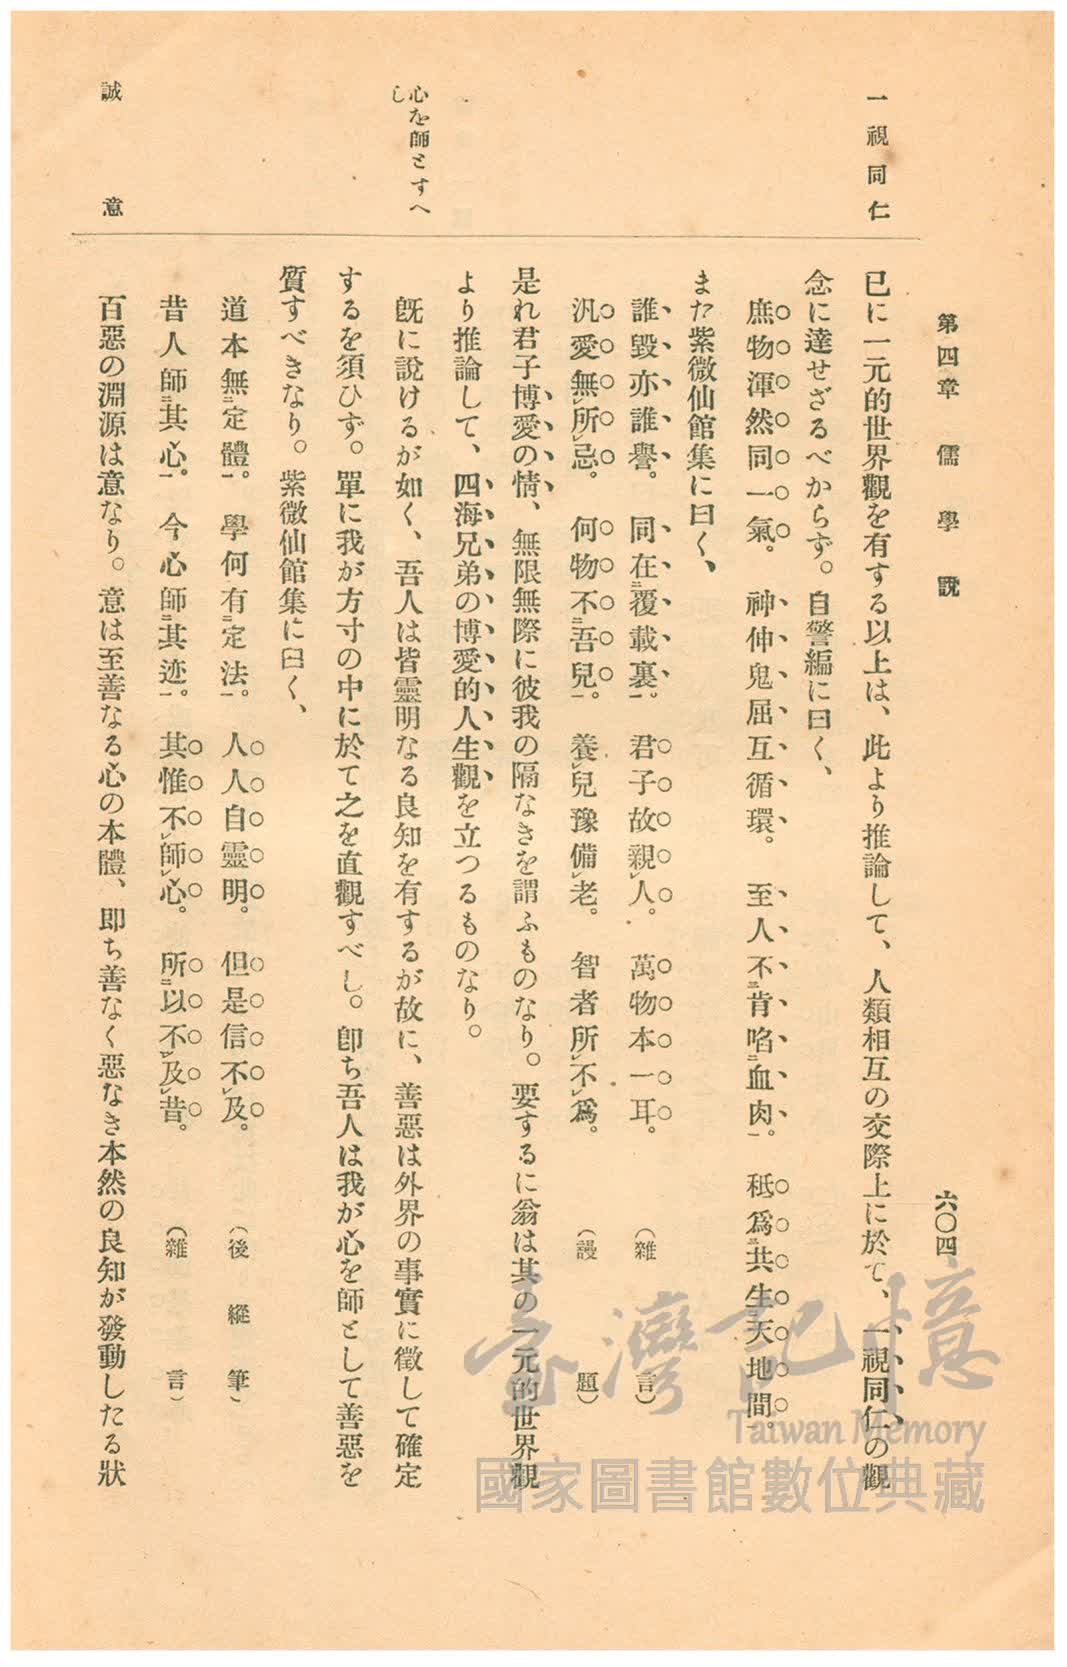 第四章 儒學說
六〇四
一視同仁
已に一元的世界觀を有する以上は、此より推論して、人類相互の交際上に於て、一視同仁の觀
念に達せざるべからず。自警編に曰く、
庶物渾然同一氣。神伸鬼屈互循環。至人不肯啗血肉。秖爲共生天地間
また紫微仙館集に曰く、
誰毀亦誰譽。同在覆載裏。君子故親人。萬物本一耳。(雜言)
汎愛無所忌。何物不吾兒。養兒豫備老。智者所不爲。(謾題)
是れ君子博愛の情、無限無際に彼我の隔なきを謂ふものなり。要するに翁は其の一元的世界觀
より推論して、四海兄弟の博愛的人生觀を立つるものなり。
心を師とすへ
し
既に說けるが如く、吾人は皆靈明なる良知を有するが故に、善惡は外界の事實に徵して確定
するを須ひず。單に我が方寸の中に於て之を直觀すべし。卽ち吾人は我が心を師として善惡を
質すべきなり。紫微仙館集に曰く、
道本無定體。學何有定法。人人自靈明。但是信不及。(後縱筆)
昔人師其心。今心師其迹。其惟不師心。所以不及昔。(雜言)
誠意
百惡の淵源は意なり。意は至善なる心の本體、卽ち善なく惡なき本然の良知が發動したる狀
臺灣記憶
Taiwan Memory
國家圖書館數位典藏